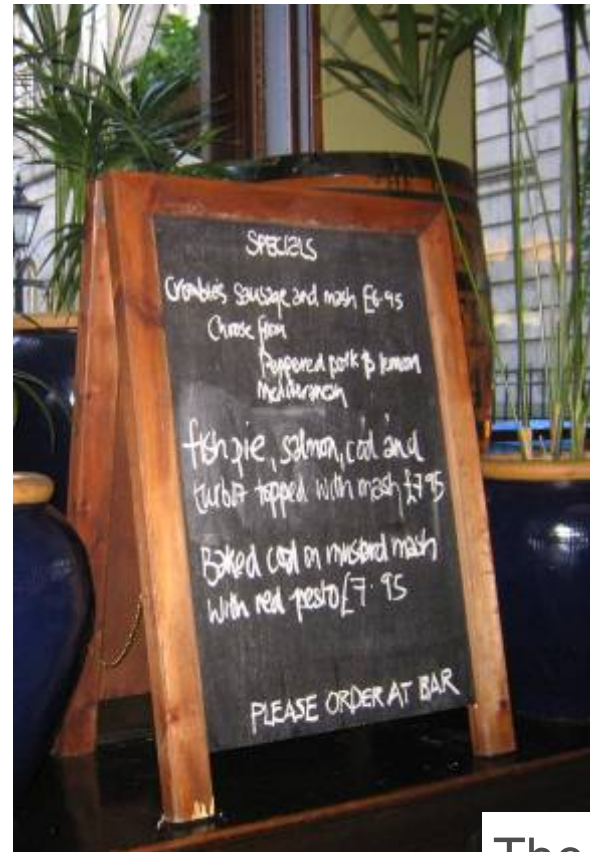 SPECIALS
Crombies Sausage and mash £6.95
Choose from
Peppered pork & lemon
Mediteranean
fish pie, salmon, cod and
turbot topped with mash £7.95
Baked cod on mustard mash
with red pesto £7.95
PLEASE ORDER AT BAR
The